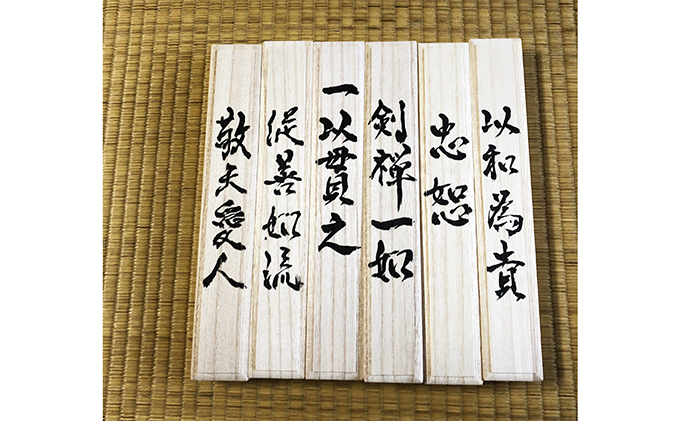 以和為貴
忠恕
剣禅一如
一以貫之
従善如流
敬天愛人